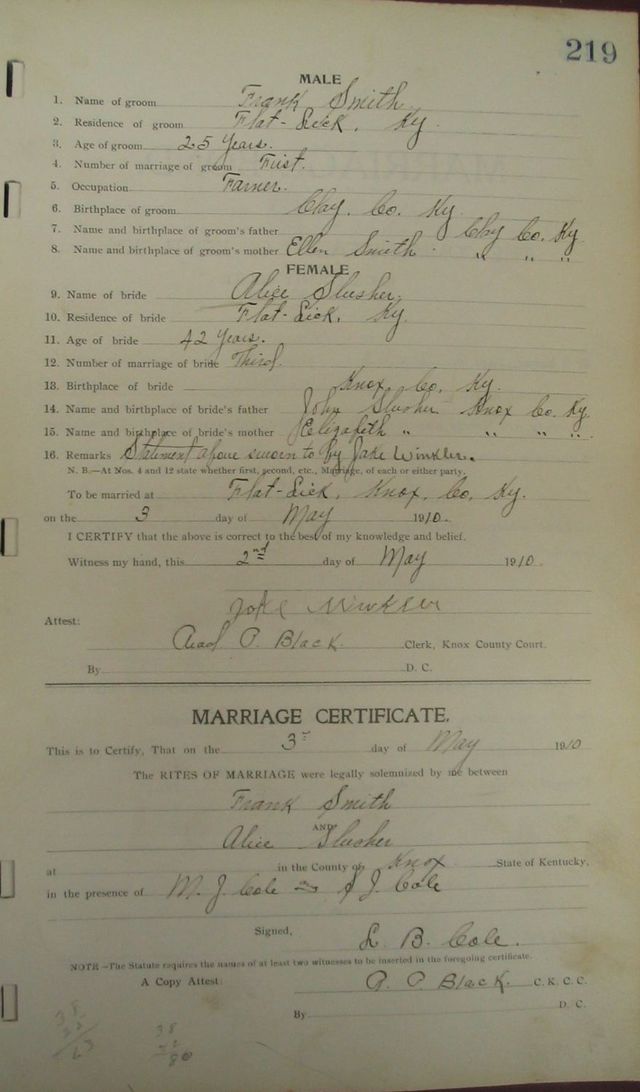 219
MALE
1. Name of groom Frank Smith
2. Residence of groom Flat-Lick, Ky
3. Age of groom 25 Years.
4. Number of marriage of groom First.
5. Occupation Farmer.
6. Birthplace of groom Clay. Co. Ky.
7. Name and birthplace of groom's father Clay Co. Ky
8. Name and birthplace of groom's mother Ellen Smith " " "
FEMALE
9. Name of bride Alice Slusher,
10. Residence of bride Flat-Lick, Ky
11. Age of bride 42 Years.
12. Number of marriage of bride Third.
13. Birthplace of bride Knox Co, Ky.
14. Name and birthplace of bride's father John Slusher Knox Co. Ky.
15. Name and birthplace of bride's mother Elizabeth " " " "
16. Remarks Statement above sworn to by Jake Winkler.
N. B.—At Nos. 4 and 12 state whether first, second, etc., Marriage, of each or either party.
To be married at Flat-Lick, Knox, Co, Ky.
on the 3 day of May 1910.
I CERTIFY that the above is correct to the best of my knowledge and belief.
Witness my hand, this 2nd day of May 1910.
Jake Winkler
Attest:
P. Black. Clerk, Knox County Court.
By D. C.
MARRIAGE CERTIFICATE.
This is to Certify, That on the 3 day of May 1910
The RITES OF MARRIAGE were legally solemnized by me between
Frank Smith
AND
Alice Slusher
at in the County of Knox State of Kentucky,
in the presence of M. J. Cole S J. Cole
Signed, L. B. Cole.
NOTE—The Statute requires the names of at least two witnesses to be inserted in the foregoing certificate.
A Copy Attest: P. Black. C. K. C. C.
By D. C.
38